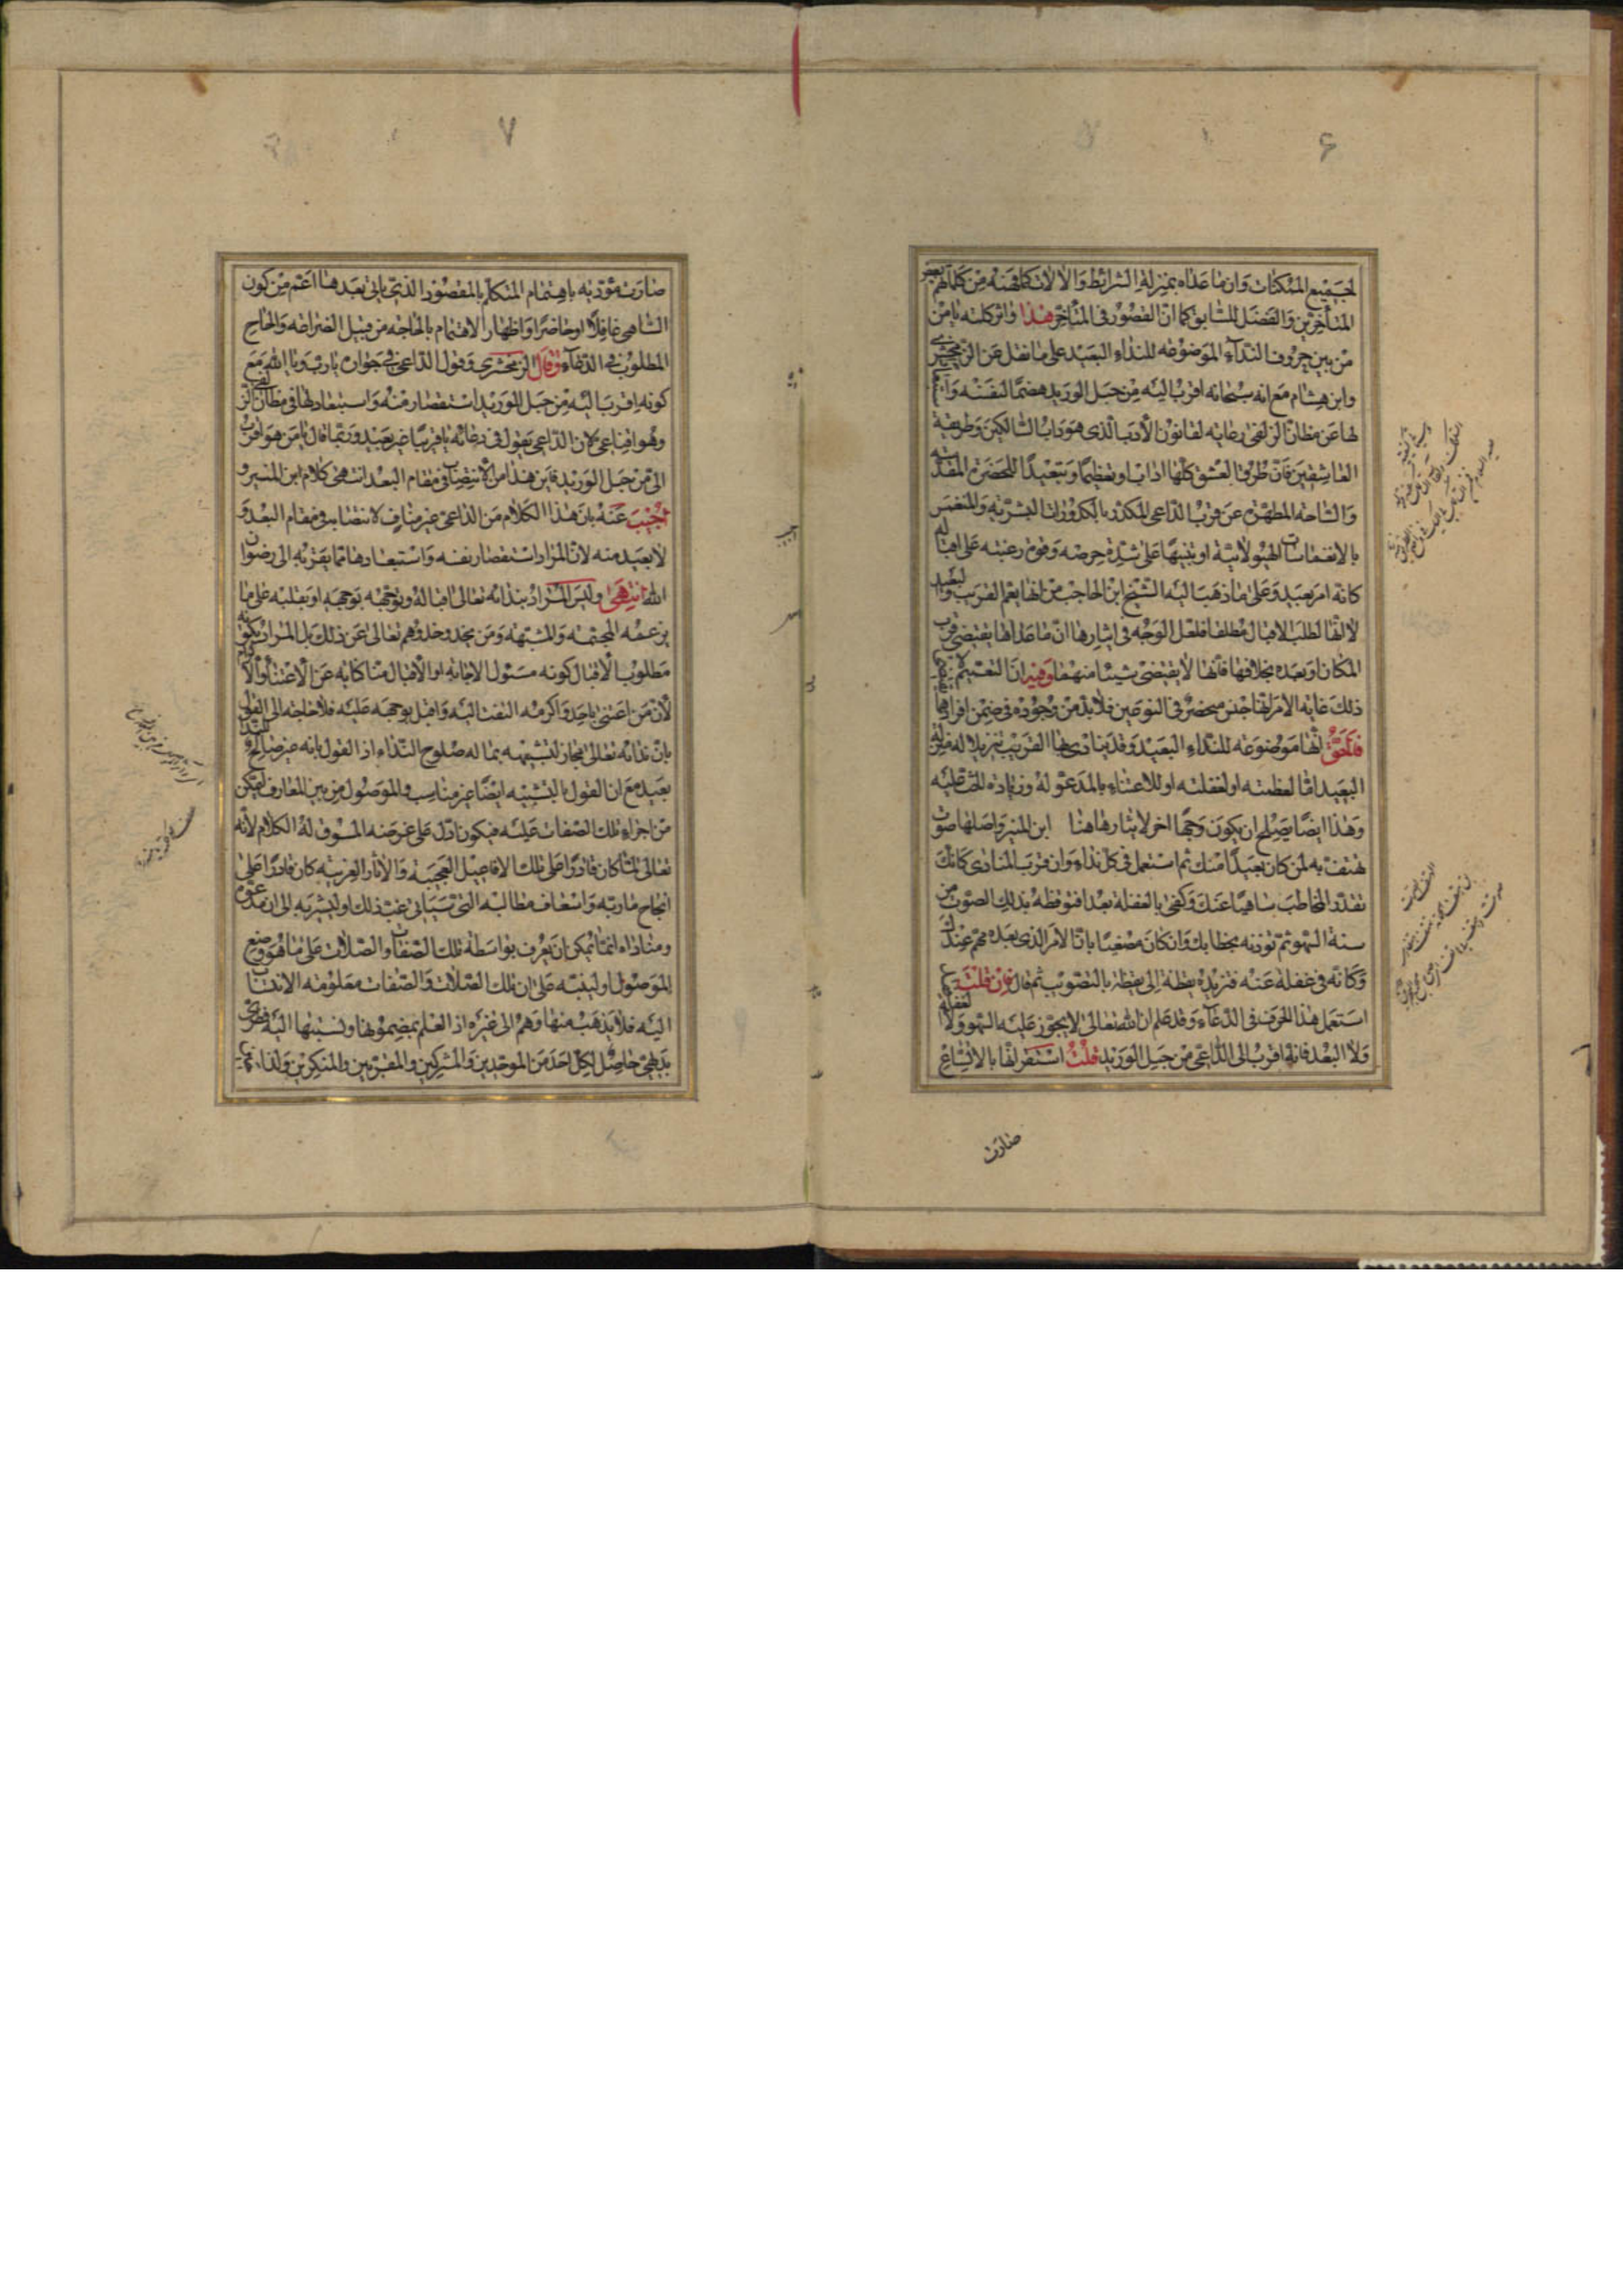 ۶
لجميع الممكنات وان ما عداه بمنزلة الشرائط والالات كما فهمنه من كلام بعض
المتأخرين والفضل للسابق كما ان القصور فى المتأخر هذا واثر كلمة يا من
من بين حروف النداء الموضوعه للنداء البعيد على ما نقل عن الزمخشرى
وابن هشام مع انه سبحانه اقرب اليه من حبل الوريد هضما لنفسه و
لها عن مظان الزلفى رعايه لقانون الأدب الذى هو داب السالكين وطريقة
العاشقين فان طرق العشق كلها اداب او تعظيما وتبعيدا للحضرة المقدسه
والساحه المطهره عن قرب الداعى المكدر بالكدورات البشريه والمنغمس
بالانغماسات الهيولانية او تنبيها على شدة حرصه وفور رغبته على اقباله
كانه امر بعيد وعلى ما ذهب اليه الشيخ ابن الحاجب من انها يعم القريب والبعيد
لانها لطلب الاقبال مطلقا فلعل الوجه فى ايثارها ان ما عداها يقتضى قرب
المكان او بعده بخلافها فانها لا يقتضى شيئا منهما وفيه ان التعميم لا
ذلك غايه الامر انها جنس منحصر فى النوعين فلا بد من وجوده فى ضمن افرادها
فالحق انها موضوعه للنداء البعيد وقد ينادى بها القريب تنزيلا له منزلة
البعيد اما لعظمته او لغفلته او للاعتناء بالمدعو له وزيادة للحث عليه
وهذا ايضا يصلح ان يكون وجها اخر لايثارها هنا ابن المنير واصلها صوت
يهتف به لمن كان بعيدا منك ثم استعمل فى كل نداء وان قرب المنادى كانك
تقدر المخاطب ساهيا عنك وكفى بالغفله بعدا فتوقظه بذلك الصوت من
سنة السهو ثم تؤذنه بخطابك وان كان مصغيا بان الامر الذى بعده مهم عندك
وكانه فى غفلة عنه فتزيده يقظة الى يقظة بالتصويب ثم قال فان قلت
استعمل هذا الحرف فى الدعاء وقد علم ان الله تعالى لا يجوز عليه السهو ولا الغفلة
ولا البعد فانه اقرب الى الداعى من حبل الوريد قلت استقر لها بالاتساع
صارت
۷
صارت مؤذنه باهتمام المتكلم بالمقصود الذى ياتى بعدها اعم من كون
الساهى غافلا او حاضرا واظهار الاهتمام بالحاجه من قبيل الضراعه والالحاح
المطلوب فى الدعاء وقال الزمخشرى وقول الداعى فى جوان يا رب ويا الله مع
كونه اقرب اليه من حبل الوريد استقصار منه واستبعاد لها فى مظان الزلفى
وهو اقناعى لان الداعى يقول فى دعائه يا قريبا غير بعيد وربما قال يا من هو اقرب
الى من حبل الوريد فاين هذا من الانتصاب فى مقام البعد انتهى كلام ابن المنير و
اجيب عنه بان هذا الكلام من الداعى غير مناف لانتصابه فى مقام البعد و
لا بعيد منه لان المراد استقصار نفسه واستبعادها مما يقربه الى رضوان
الله انتهى وليس المراد بندائه تعالى اقباله وتوجهه بوجهه او بقلبه على ما
يزعمه المجسمه والمشبهة ومن يحذو حذوهم تعالى عن ذلك بل المراد بكونه
مطلوب الأقبال كونه مسئول الاجابة او الاقبال هنا كنايه عن الاعتناء والاكرام
لأن من اعتنى باحد واكرمه التفت اليه واقبل بوجهه عليه فلا حاجه الى القول
بان ندائه تعالى مجاز لتشبيهه بما له صلوح النداء اذ القول بانه غير صالح للنداء
بعيد مع ان القول بالتشبيه ايضا غير مناسب والموصول من بين المعارف ليتمكن
من اجراء تلك الصفات عليه فيكون ادل على غرضه المسوق له الكلام لأنه
تعالى لما كان قادرا على تلك الافاعيل العجيبة والاثار الغريبه كان قادرا على
انجاح مأربه واسعاف مطالبه التى سياتى عقب ذلك او ليشير به الى ان مدعوه
ومناداه انما يمكن ان يعرف بواسطة تلك الصفات والصلات على ما هو وضع
الموصول او لينبه على ان تلك الصلات والصفات معلومه الانتساب
اليه فلا يذهب منها وهم الى غيره اذ العلم بمضمونها ونسبتها اليه فطرى
بديهى حاصل لكل احد من الموحدين والمشركين والمقرين والمنكرين ولذا